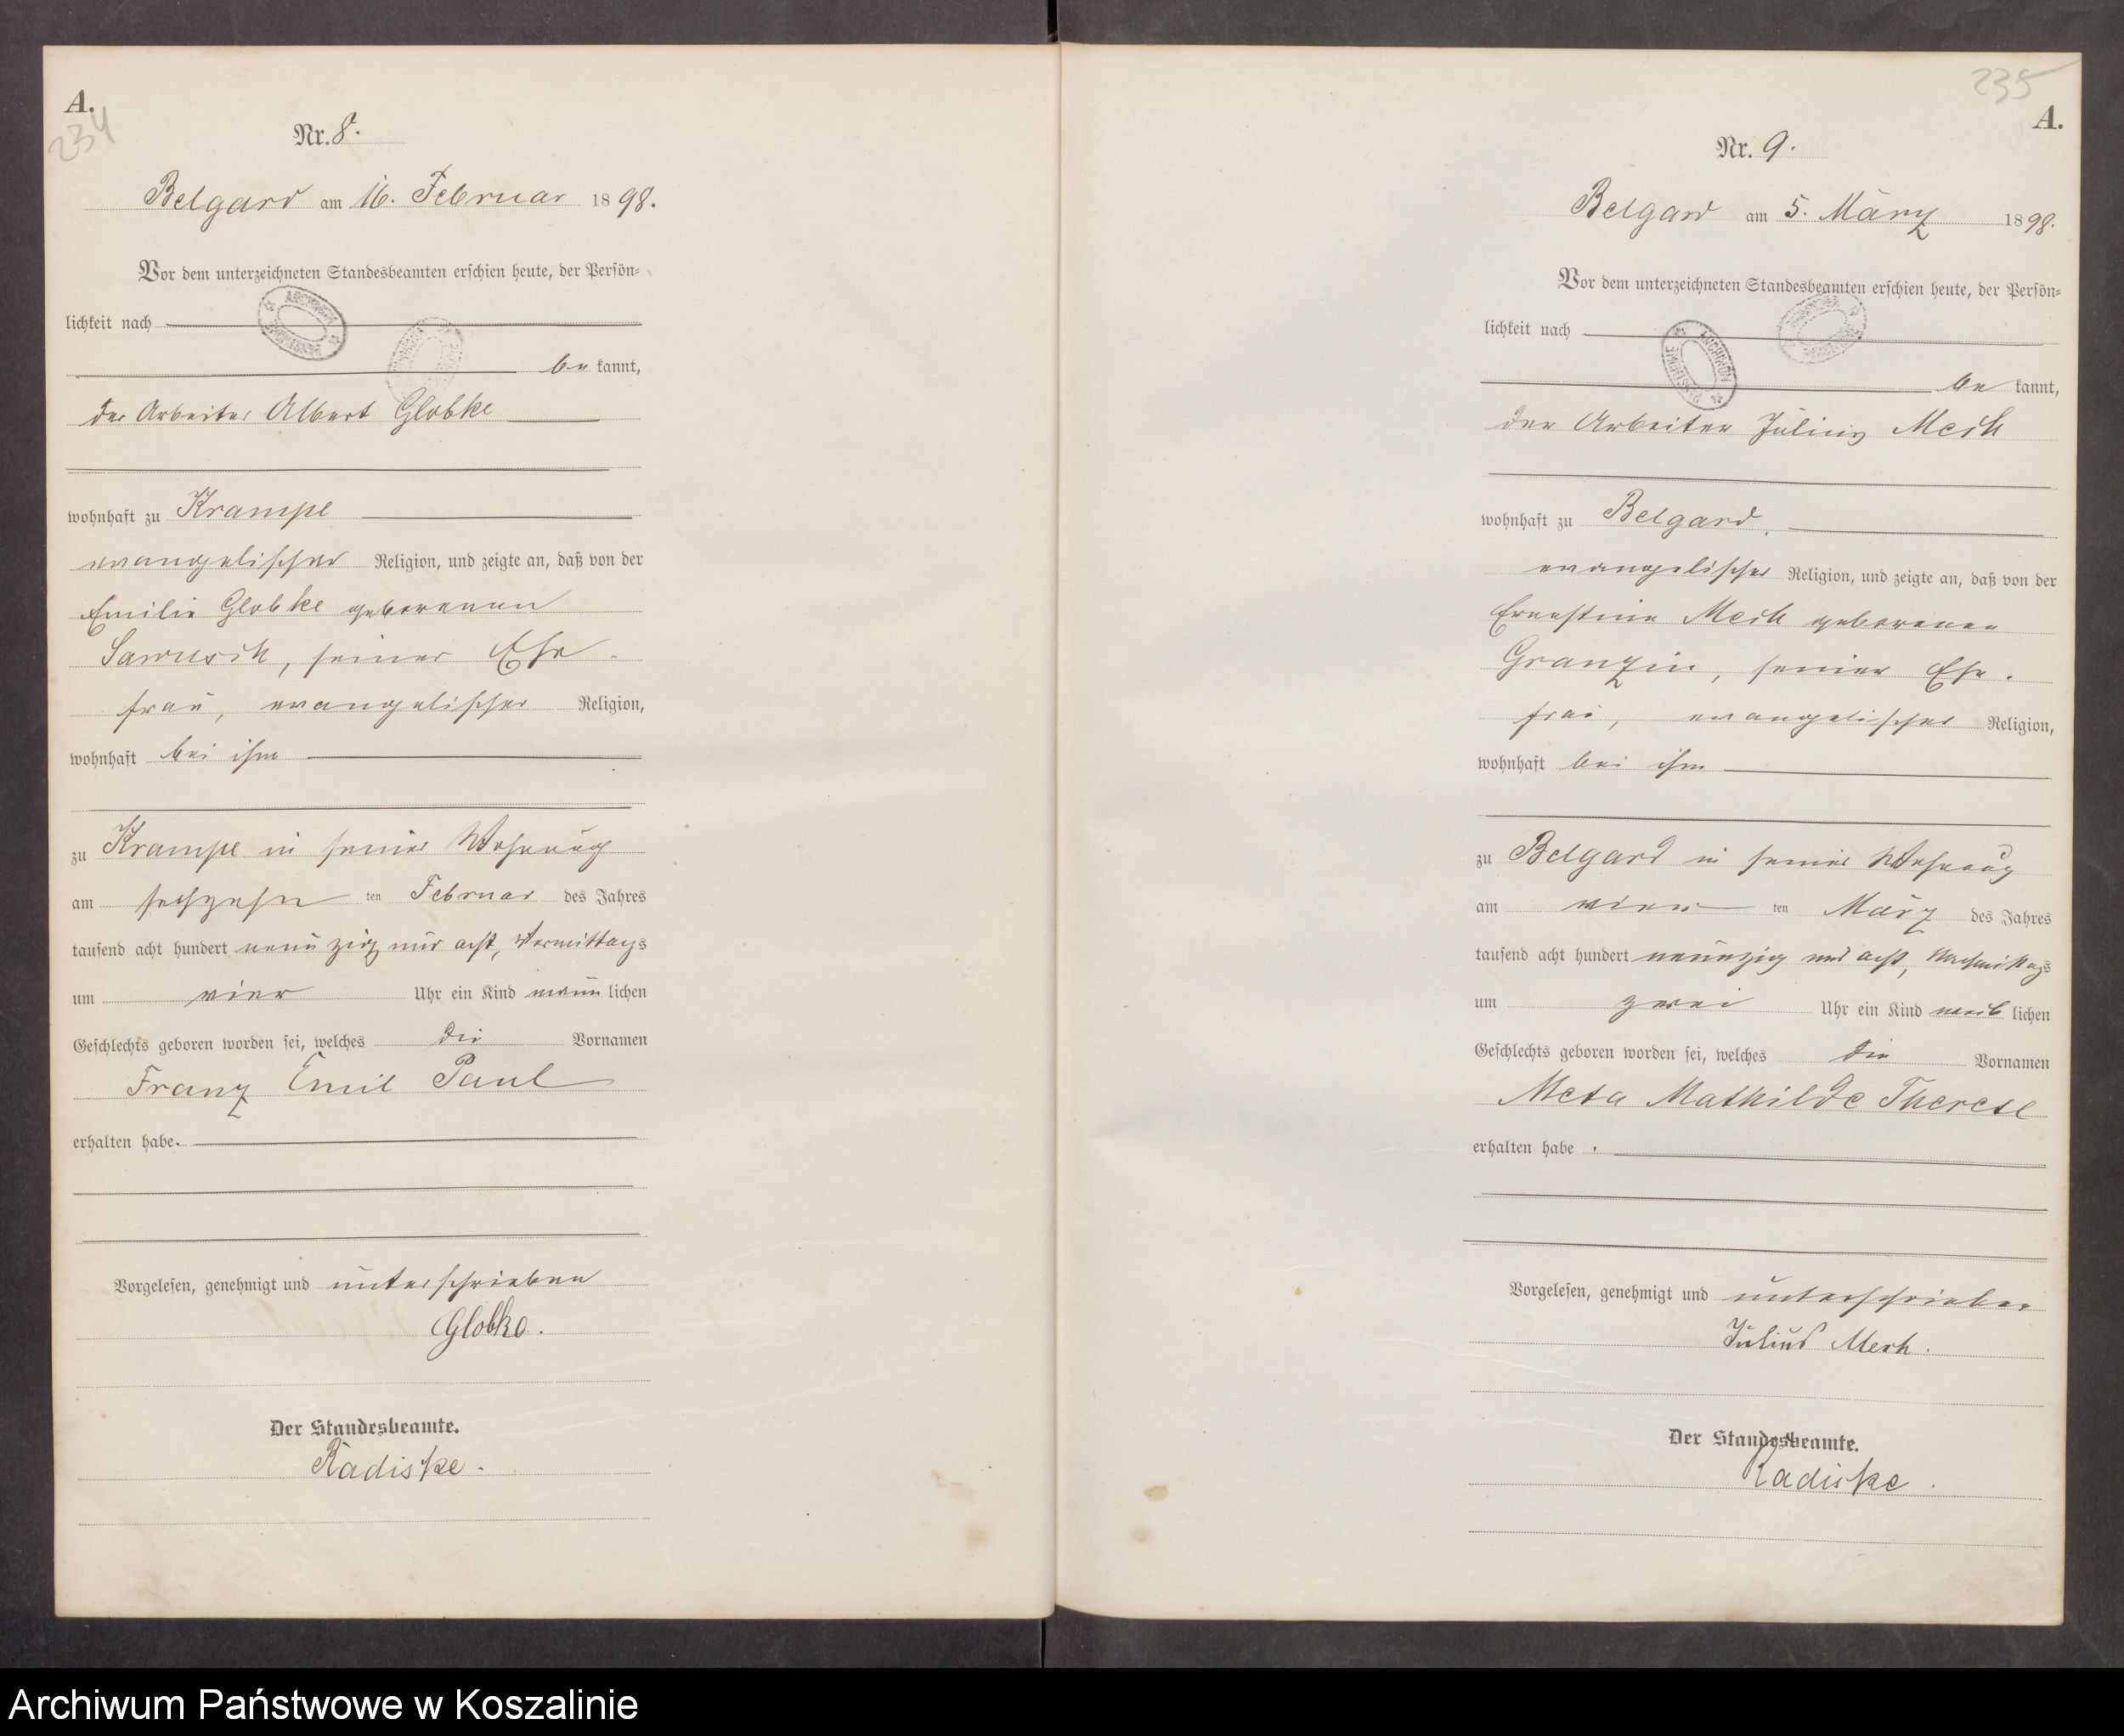 A.
234
Nr. 8.
Belgard am 16. Februar 1898.
Vor dem unterzeichneten Standesbeamten erschien heute, der Persön-
lichkeit nach
be kannt,
der Arbeiter Albert Globke
wohnhaft zu Krampe
evangelischer Religion, und zeigte an, daß von der
Emilie Globke geborenen
seiner Ehe-
frau, evangelischer Religion,
wohnhaft bei ihm
zu Krampe in seiner Wohnung
am sechzehn ten Februar des Jahres
tausend acht hundert neunzig und acht, Vormittags
um vier Uhr ein Kind männ lichen
Geschlechts geboren worden sei, welches die Vornamen
Franz Emil Paul
erhalten habe.
Vorgelesen, genehmigt und unterschrieben
Globke.
Der Standesbeamte.
Radiske.
235
A.
Nr. 9.
Belgard am 5. März 1898.
Vor dem unterzeichneten Standesbeamten erschien heute, der Persön-
lichkeit nach
be kannt,
der Arbeiter Julius Mech
wohnhaft zu Belgard,
evangelischer Religion, und zeigte an, daß von der
Ernestine Mech geborenen
Granzin, seiner Ehe-
frau, evangelischer Religion,
wohnhaft bei ihm
zu Belgard in seiner Wohnung
am vier ten März des Jahres
tausend acht hundert neunzig und acht, Nachmittags
um zwei Uhr ein Kind weib lichen
Geschlechts geboren worden sei, welches die Vornamen
Meta Mathilde Therese
erhalten habe.
Vorgelesen, genehmigt und unterschrieben
Julius Mech.
Der Standesbeamte.
Radiske.
Archiwum Państwowe w Koszalinie